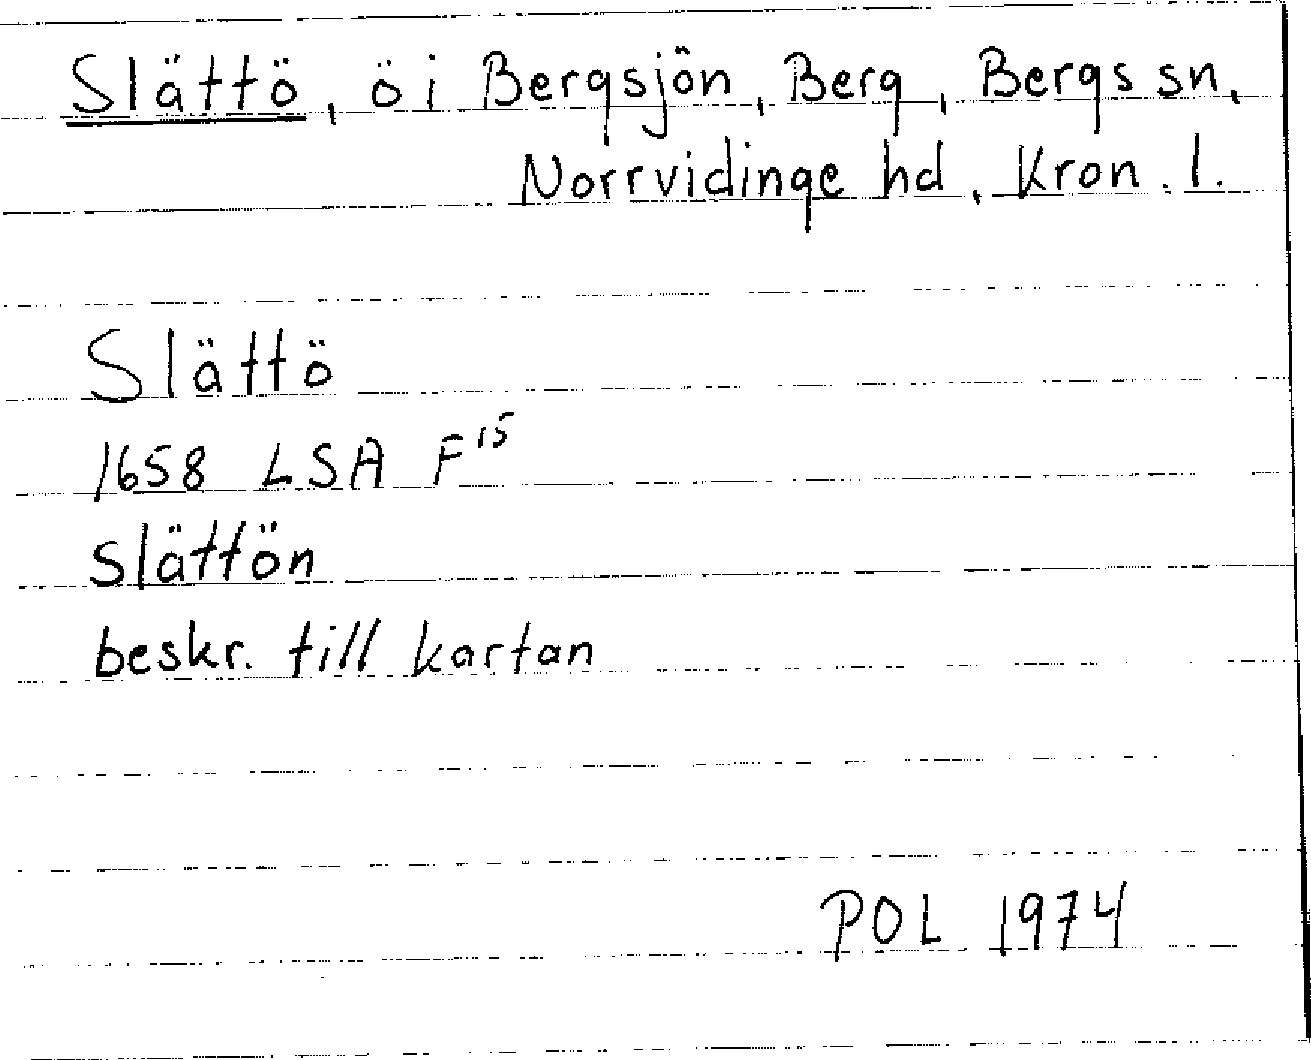 Slättö, ö i Bergsjön, Berg, Bergs sn,
Norrvidinge hd, Kron. l.
Slättö
1658 LSA F15
Slättön
beskr. till kartan
POL 1974